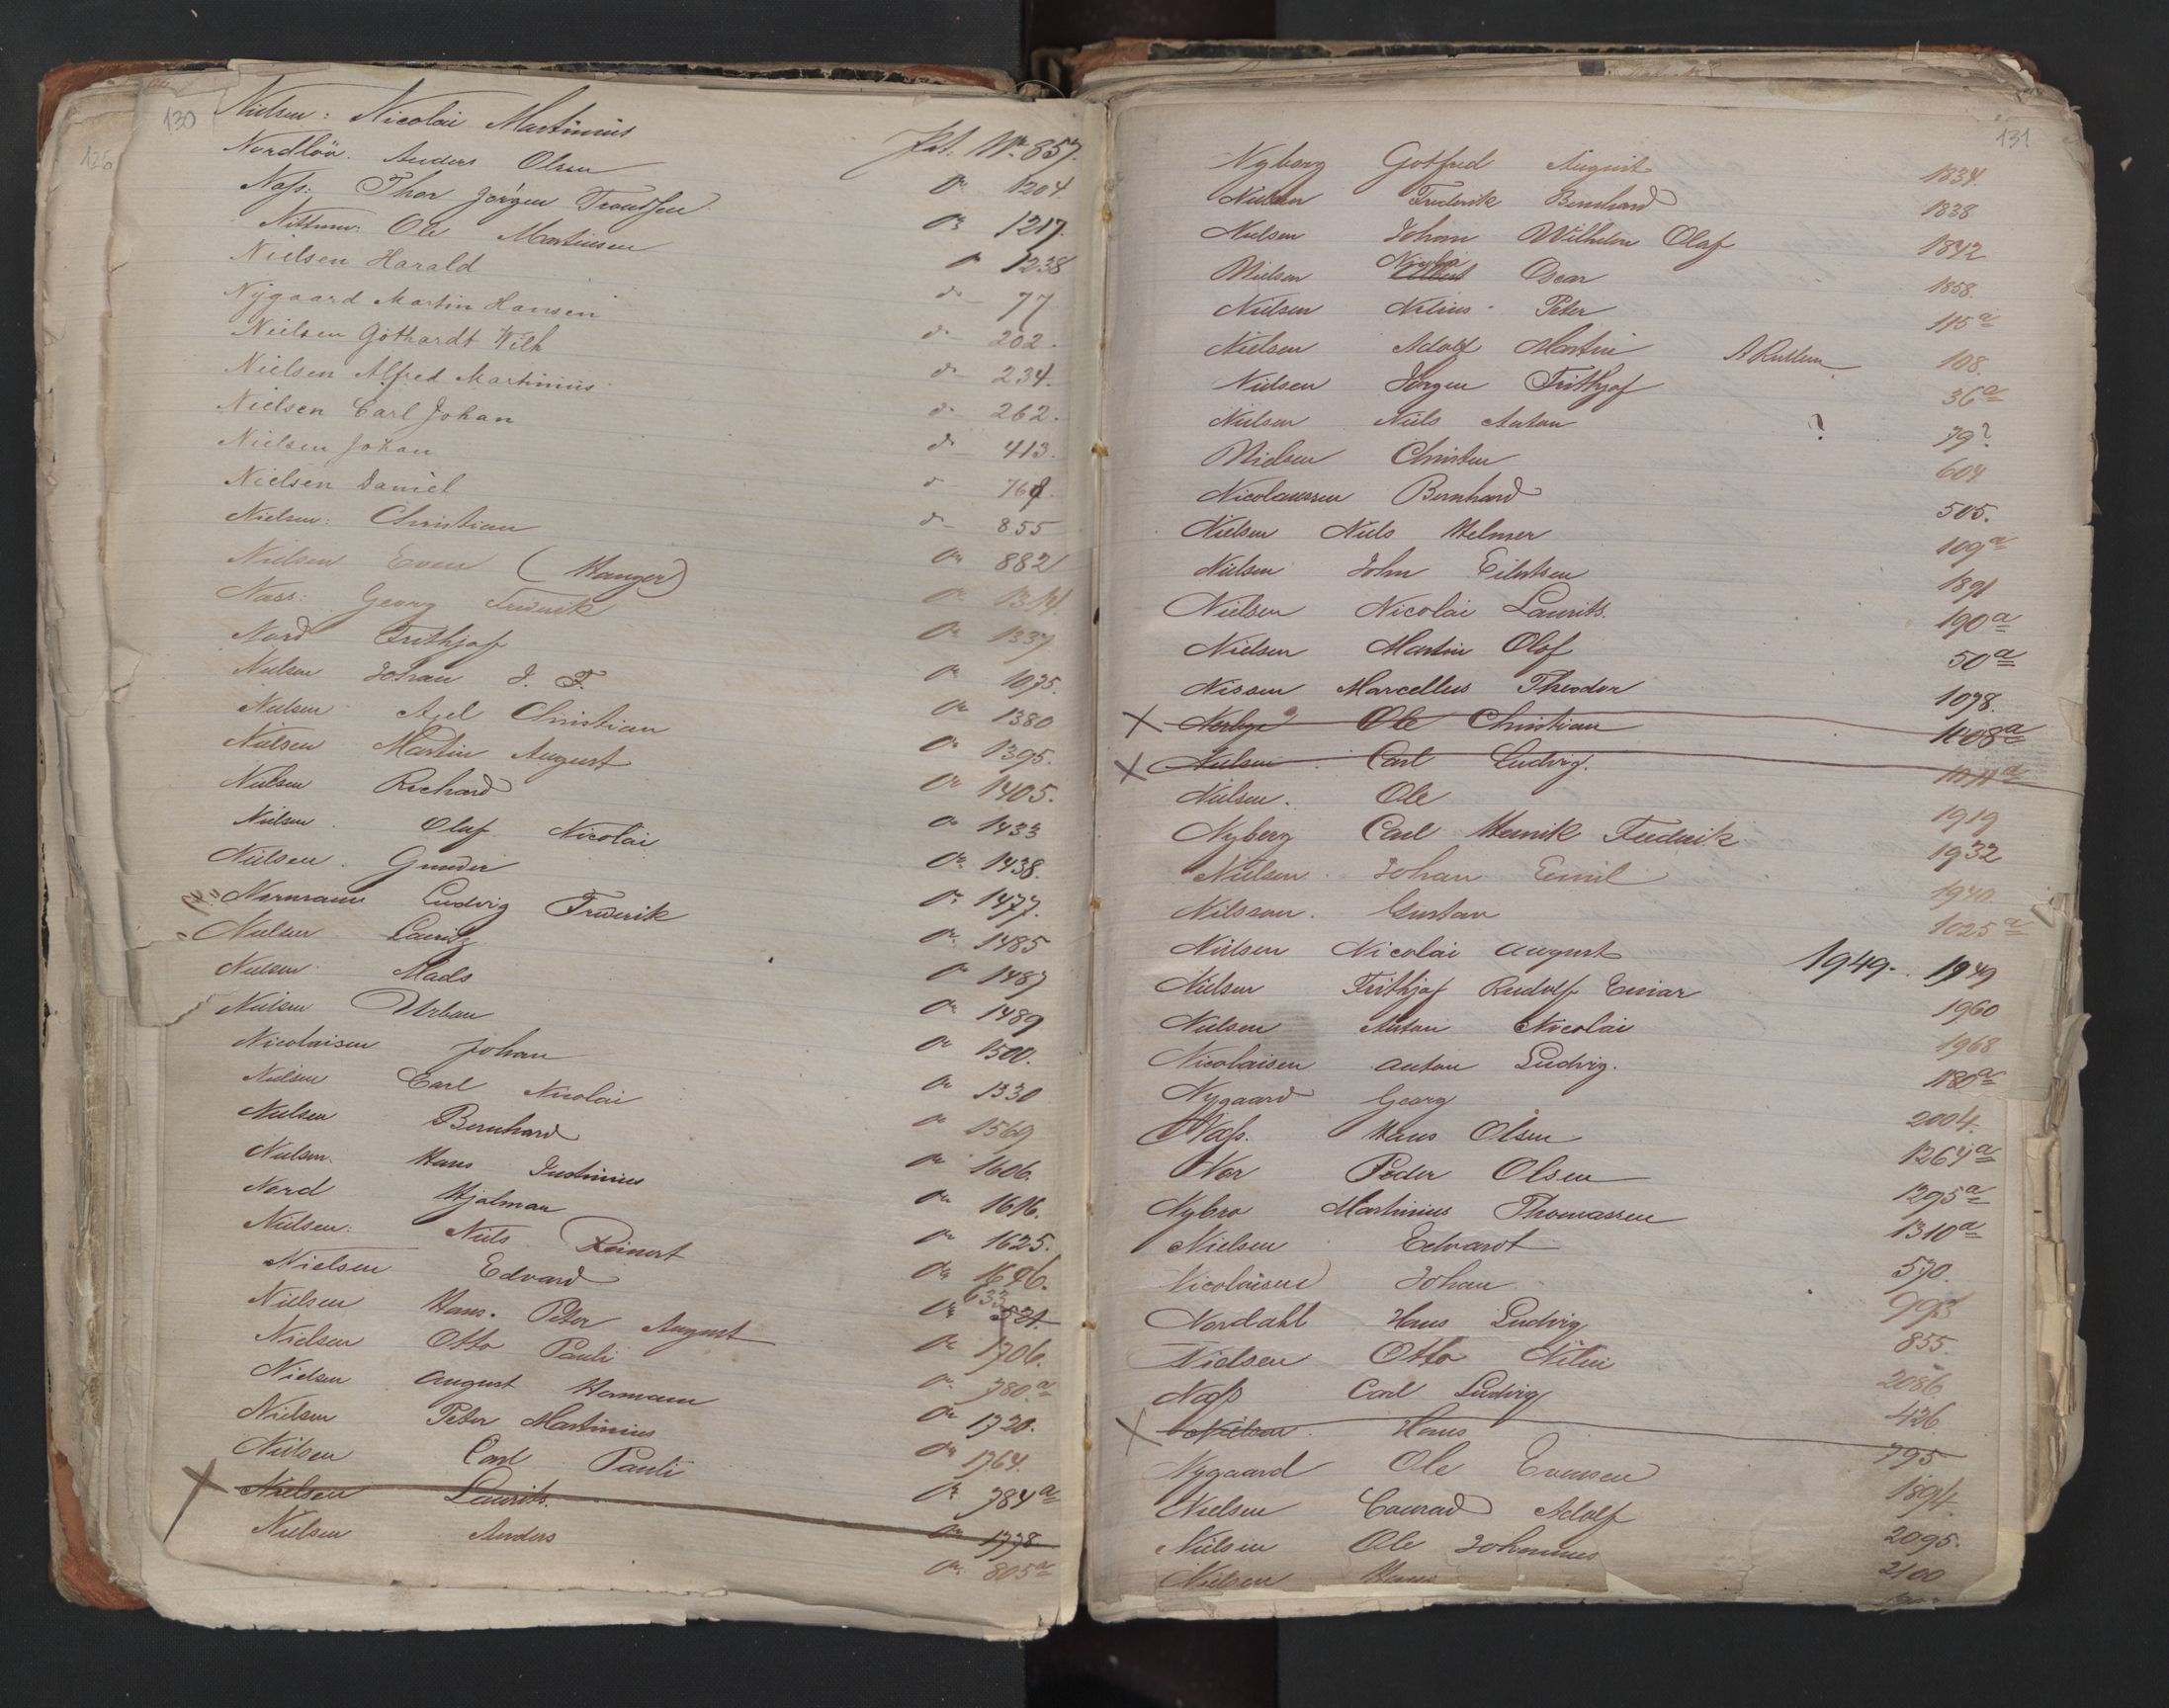 130
Nielsen: Nicolai Martinius Pat. Nr. 857.
Nordlöv. Anders Olsen do 1204
Næss: Thor Jörgen Trondsen do 1217.
Ole Martinsen do 1238
Nielsen Harald do 77
Nygaard Martin Hansen do 202.
Nielsen Gothardt Wilh do 234.
Nielsen Alfred Martinius do 262.
Nielsen Carl Johan do 413.
Nielsen Johan do
Nielsen Daniel do 855
Nielsen: Christian do 882
Nielsen Even (Hanger) do
Næss: Georg Fredrik do 1337
Nord Frithjof do 1075.
Nielsen Johan J. F. do 1380
Nielsen Axel Christian do 1395.
Nielsen Martin August do 1405.
Nielsen Richard do 1433
Nielsen Olaf Nicolai do 1438.
Nielsen. Gunder do 1477.
Normann Ludvig Fredrik do 1485
Nielsen Lauritz do 1487
Nielsen Mads do 1489
Nielsen Urban do 1500.
Nicolaisen Johan do 1330
Nielsen Carl Nicolai do 1569
Nielsen Bernhard do 1606.
Nielsen. Hans Justinius do 1616.
Nord Hjalmar do 1625.
Nielsen: Niels Reinert do 1646.
Nielsen Edvard do 633
Nielsen Hans. Peter August do 1706.
Nielsen Otto Pauli do 780a
Nielsen August Hermann do 1720.
Nielsen Peter Martinius do 1764.
Nielsen Carl Pauli do 784a
Nielsen Laurits. do 1778
Nielsen Anders do 805a
131
Nyborg Gotfred August 1834.
Nielsen Frederik Bernhard 1838
Nielsen Johan Wilhelm Olaf 1842
Nielsen Nicolai Oscar 1858.
Nielsen Nilius Peter 115a
Nielsen Adolf Martin 108.
Nielsen Jörgen Frithjof 36a
Nielsen Niels Anton ? 79?
Nielsen Christen 604
Nicolaussen Bernhard 505.
Nielsen Niels Helmer 109a
Nielsen John Eilertsen 1891
Nielsen Nicolai Laurits. 190a
Nielsen Martin Olof 50a
Nissen Marcellus Theodor 1078.
X Norbye Ole Christian 1108a
X Nielsen Carl Ludvig.
Nielsen. Ole 1919
Nyberg Carl Henrik Fredrik 1932
Nielsen Johan Emil 1940.
Nilsson. Gustav 1025a
Nielsen Nicolai August 1949. 1949
Nielsen Frithjof Rudolf Einar 1960
Nielsen Anton Nicolai 1968
Nicolaisen Anton Ludvig. 1180a
Nygaard Georg 2004.
Næss. Hans Olsen 1264a
Nor Peder Olsen 1295a
Nybro Martinius Thomassen 1310a
Nielsen Edvardt 570.
Nicolaisen Johan 993
Nordahl Hans Ludvig 855.
Nielsen Otto 2086.
Næss Carl Ludvig 426.
X Nielsen. Hans 795
Nygaard Ole Evensen 1894.
Nielsen Conrad Adolf 2095.
Nielsen Ole Johannes 2100
Nielsen Hans